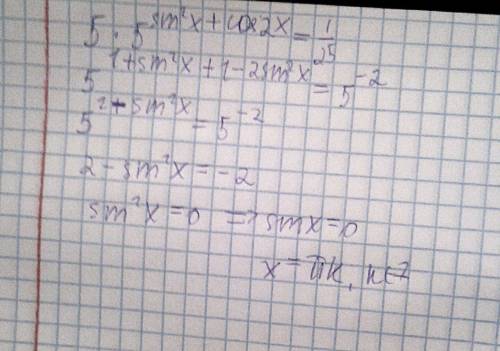 5 · 5^(sin²x + cos2x) = 1/25
5^(1+sin²x + 1 - 2sin²x) = 5^(-2)
5^(2 - sin²x) = 5^(-2)
2 - sin²x = -2
sin²x = 0 => sinx = 0
x = πk, k∈Z